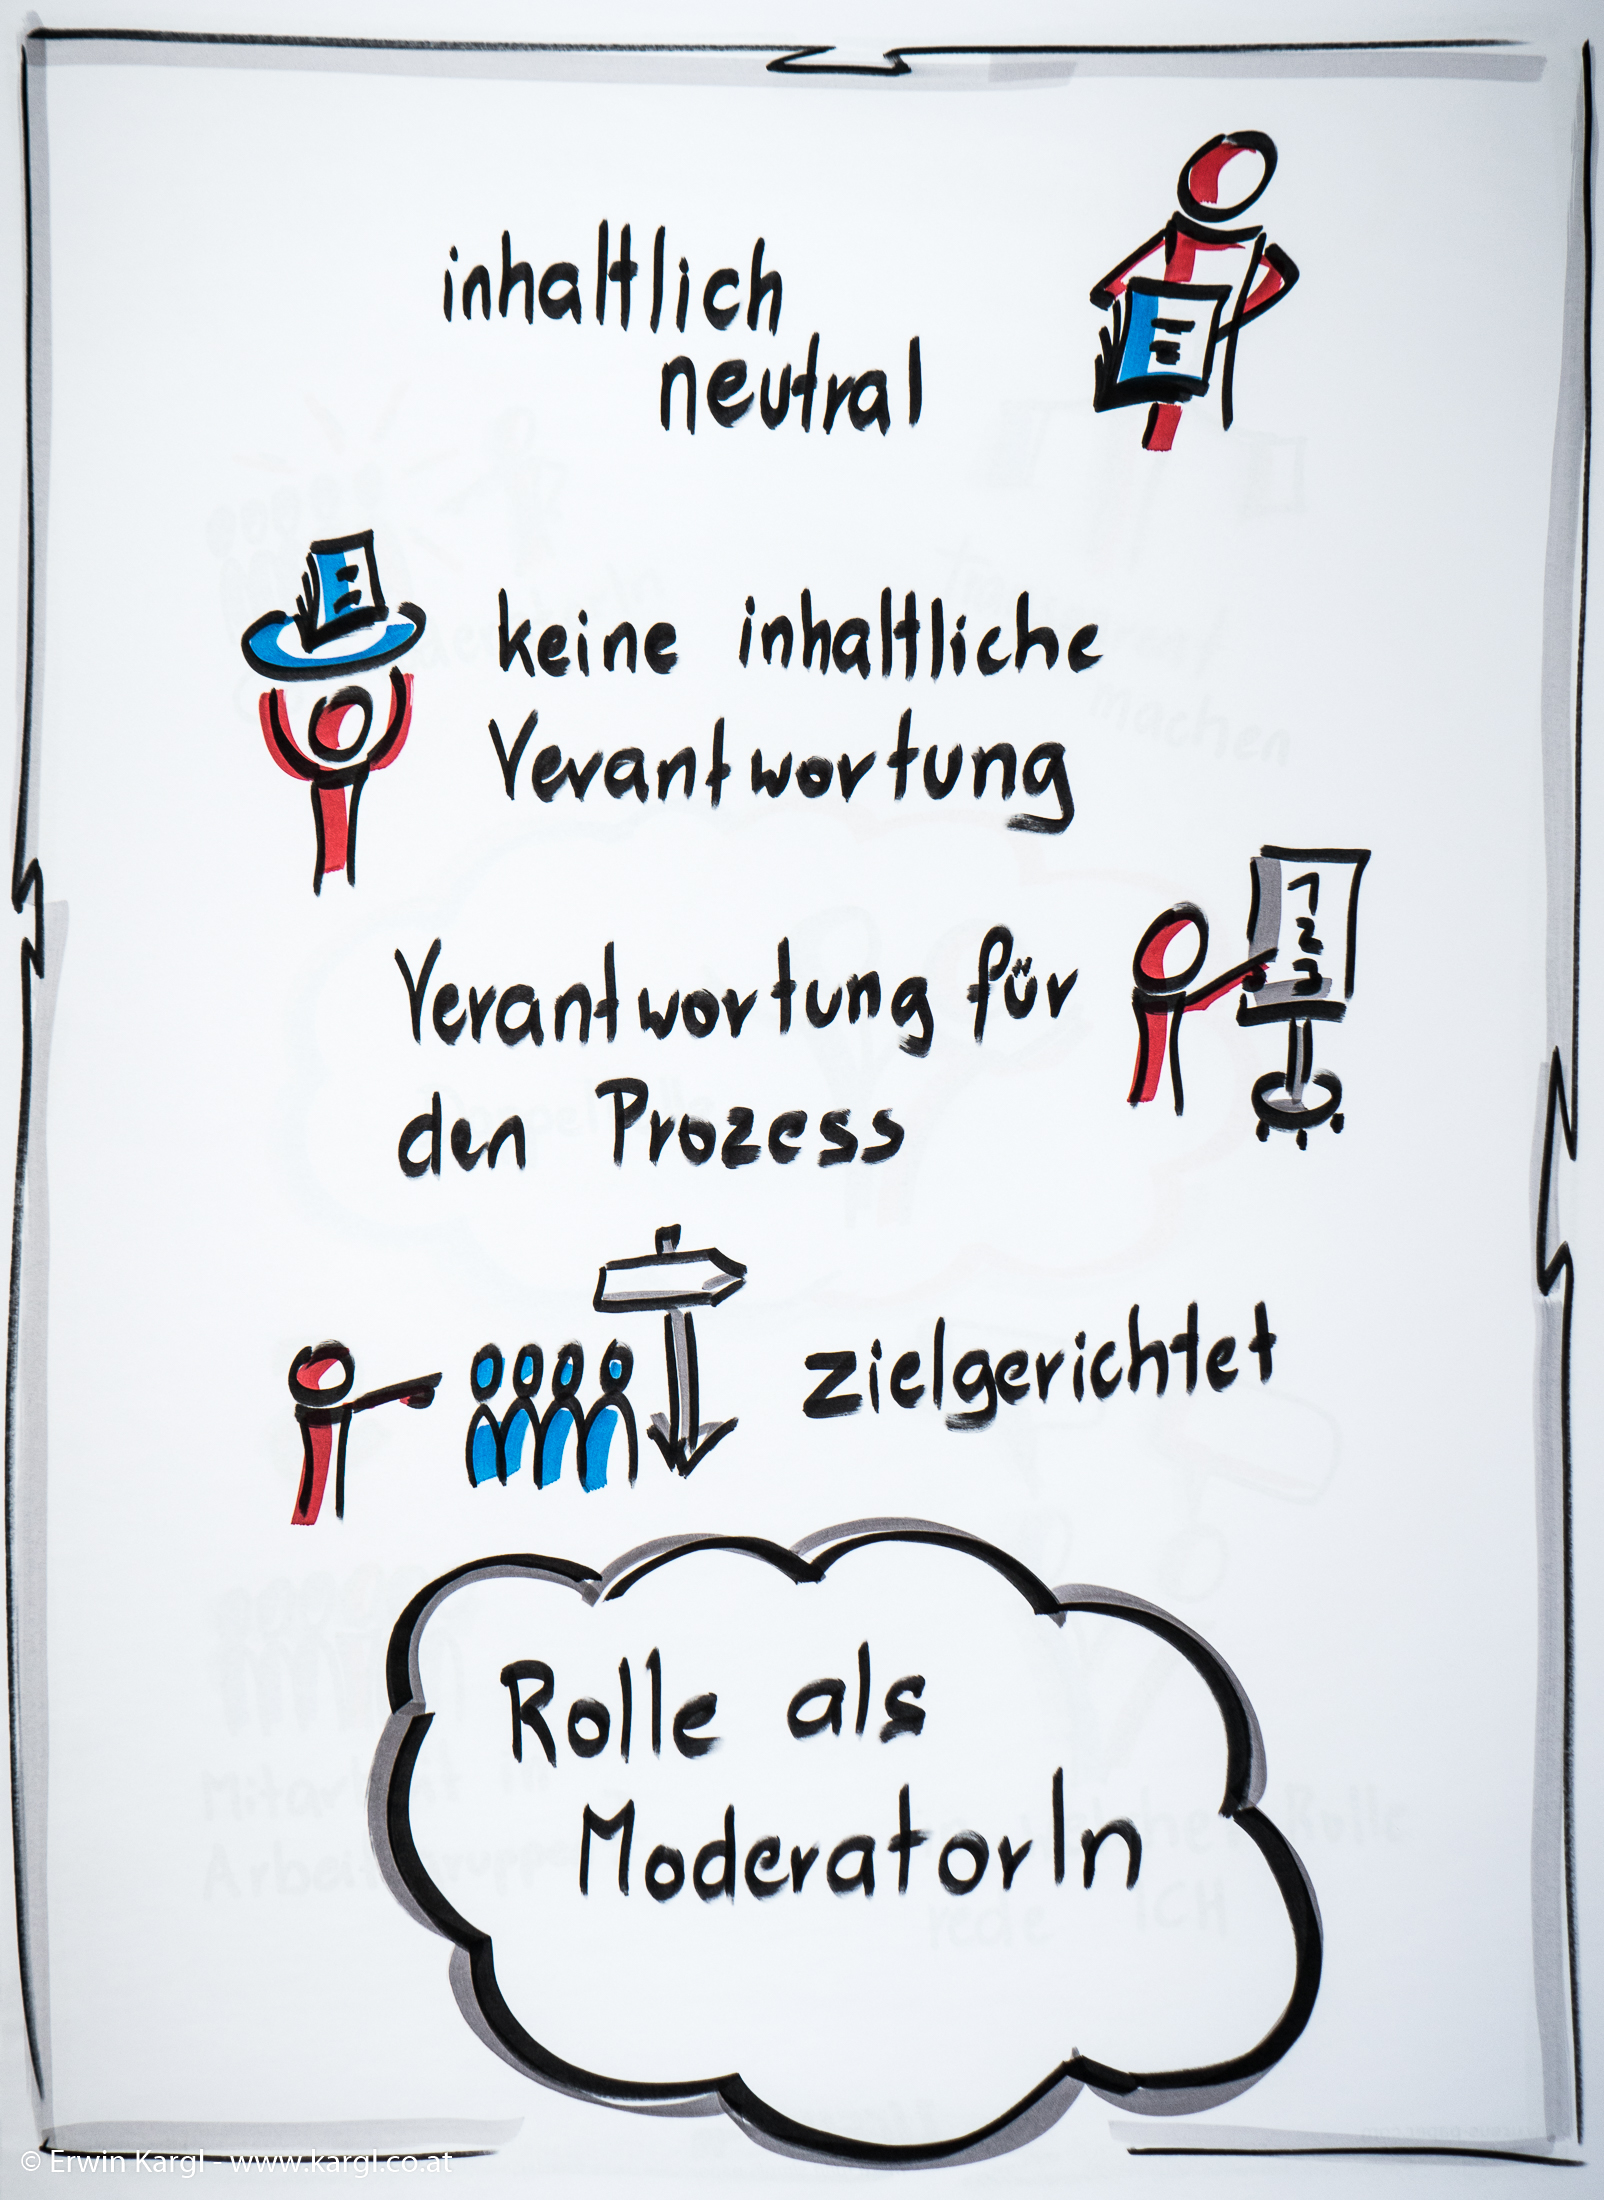 inhaltlich
neutral
keine inhaltliche
Verantwortung
1
2
3
Verantwortung für
den Prozess
zielgerichtet
Rolle als
ModeratorIn
© Erwin Kargl - www.kargl.co.at